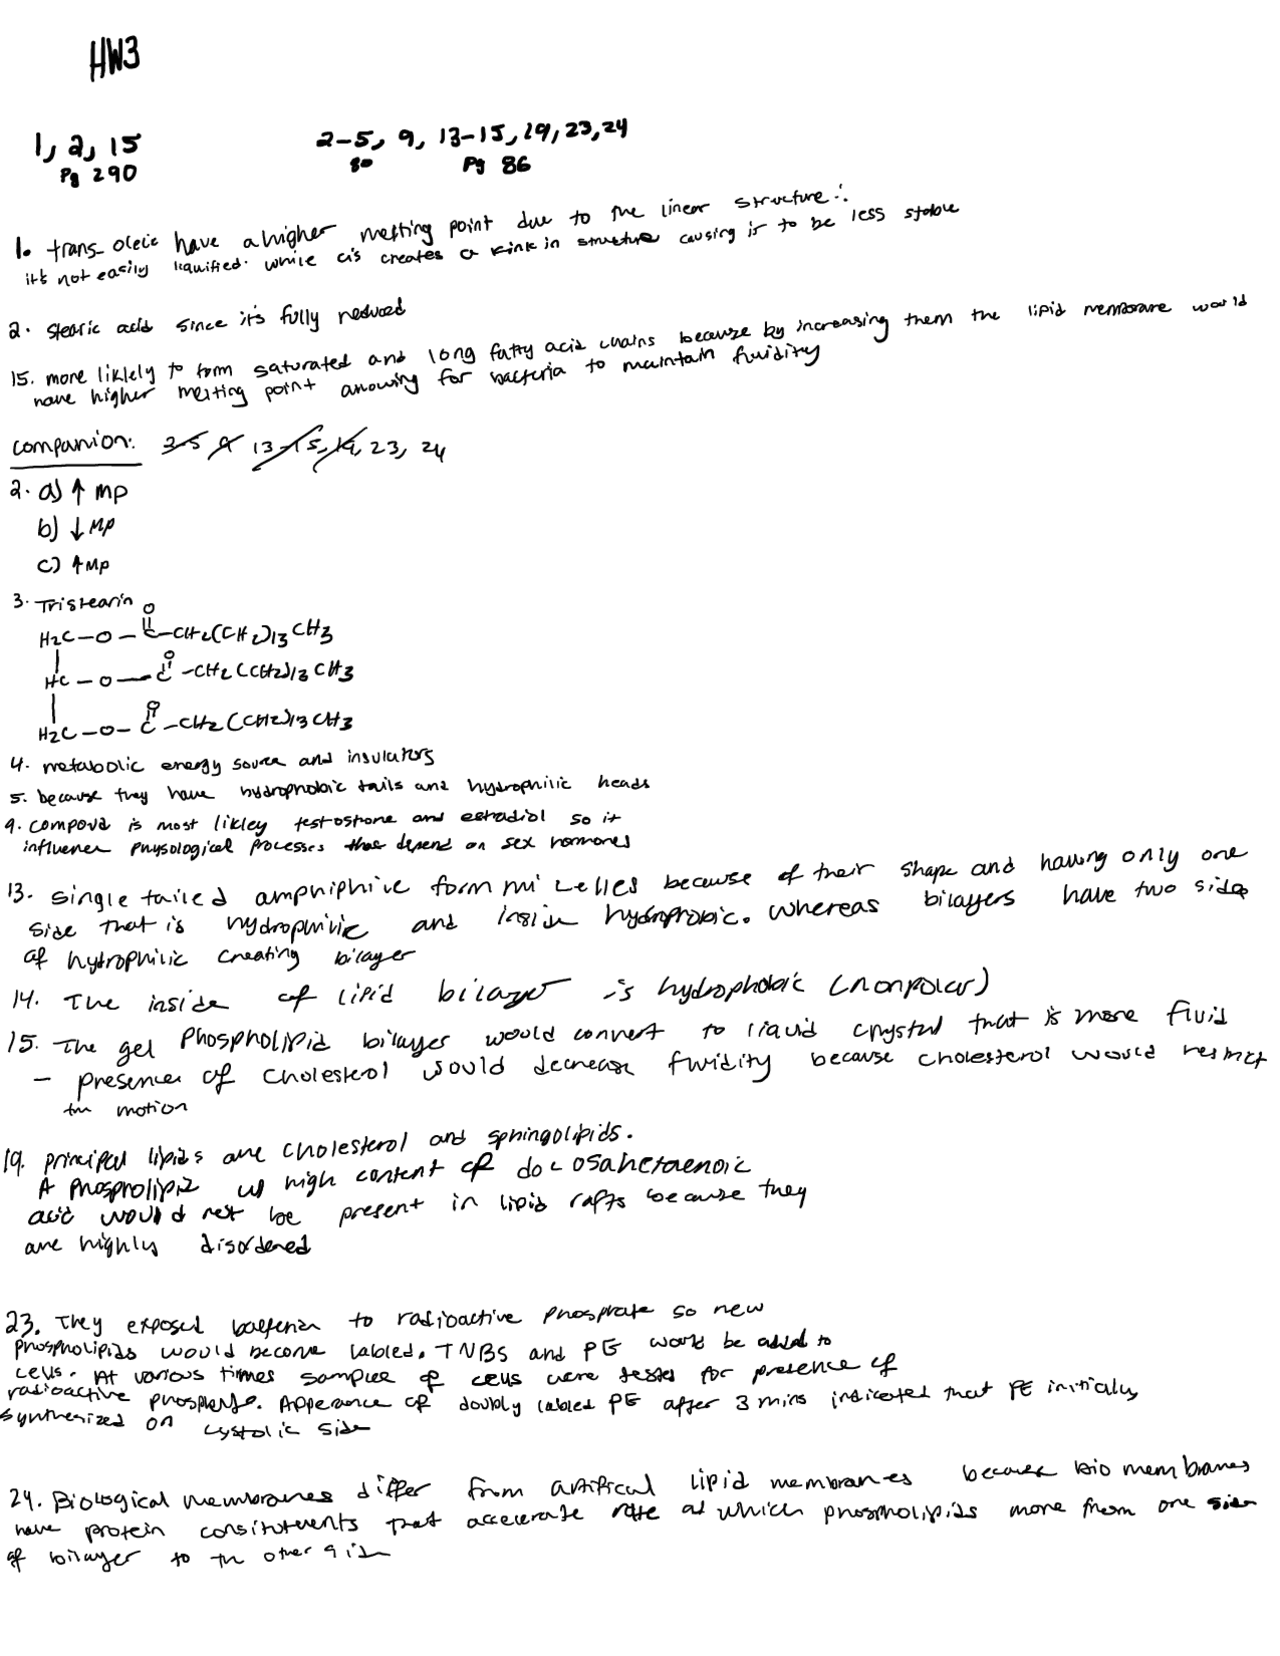 HW3
1, 2, 15
Pg 290
2-5, 9, 13-15, 19, 23, 24
80 Pg 86
1. trans-oleic have a higher melting point due to the linear structure ∴
it's not easily liquified. while cis creates a kink in structure causing it to be less stable
2. stearic acid since it's fully reduced
15. more liklely to form saturated and long fatty acid chains because by increasing them the lipid membrane would
have higher melting point allowing for bacteria to maintain fluidity
companion: 3-5 9 13-15, 19, 23, 24
2. a) ↑ MP
b) ↓ MP
c) ↑ MP
3. Tristearin
O
H2C-O-C-CH2(CH2)13CH3
O
HC-O-C-CH2(CH2)13CH3
O
H2C-O-C-CH2(CH2)13CH3
4. metabolic energy source and insulators
5. because they have hydrophobic tails and hydrophilic heads
9. compound is most likley testostrone and estradiol so it
influences physological processes that depend on sex hormones
13. single tailed amphiphilic form micelles because of their shape and having only one
side that is hydrophilic and inside hydrophobic. whereas bilayers have two sides
of hydrophilic creating bilayer
14. The inside of lipid bilayer is hydrophobic (nonpolar)
15. The gel phospholipid bilayer would convert to liquid crystal that is more fluid
- presence of cholesterol would decrease fluidity because cholesterol would restrict
the motion
19. principal lipids are cholesterol and sphingolipids.
A phospholipid w/ high content of docosahexaenoic
acid would not be present in lipid rafts because they
are highly disordered
23. They exposed bacteria to radioactive phosphate so new
phospholipids would become labled. TNBS and PE would be added to
cells. At various times samples of cells were tested for presence of
radioactive phosphate. Apperance of doubly labled PE after 3 mins indicated that PE initially
synthesized on cystolic side
24. Biological membranes differ from artifical lipid membranes because bio membranes
have protein consituents that accelerate rate at which phospholipids move from one side
of bilayer to the other side